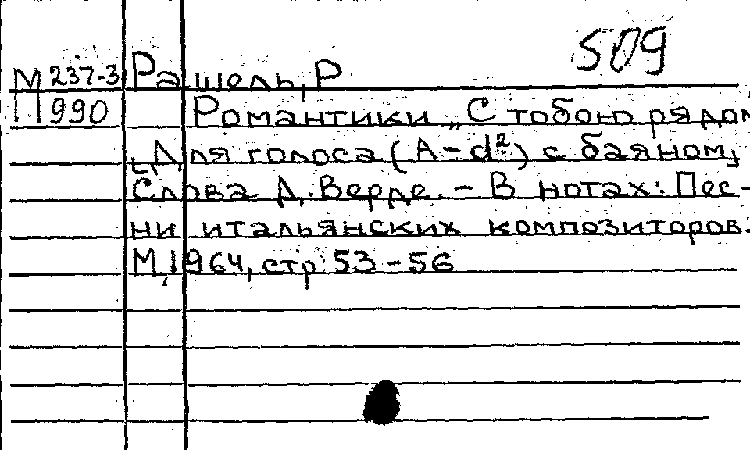 509
М 237-3 Рашель, Р
11990 Романтики „С тобою рядом
[Для голоса (A – d²) с баяном]
Слова Д. Верде. – В нотах: Пес-
ни итальянских композиторов.
М, 1964, стр 53-56